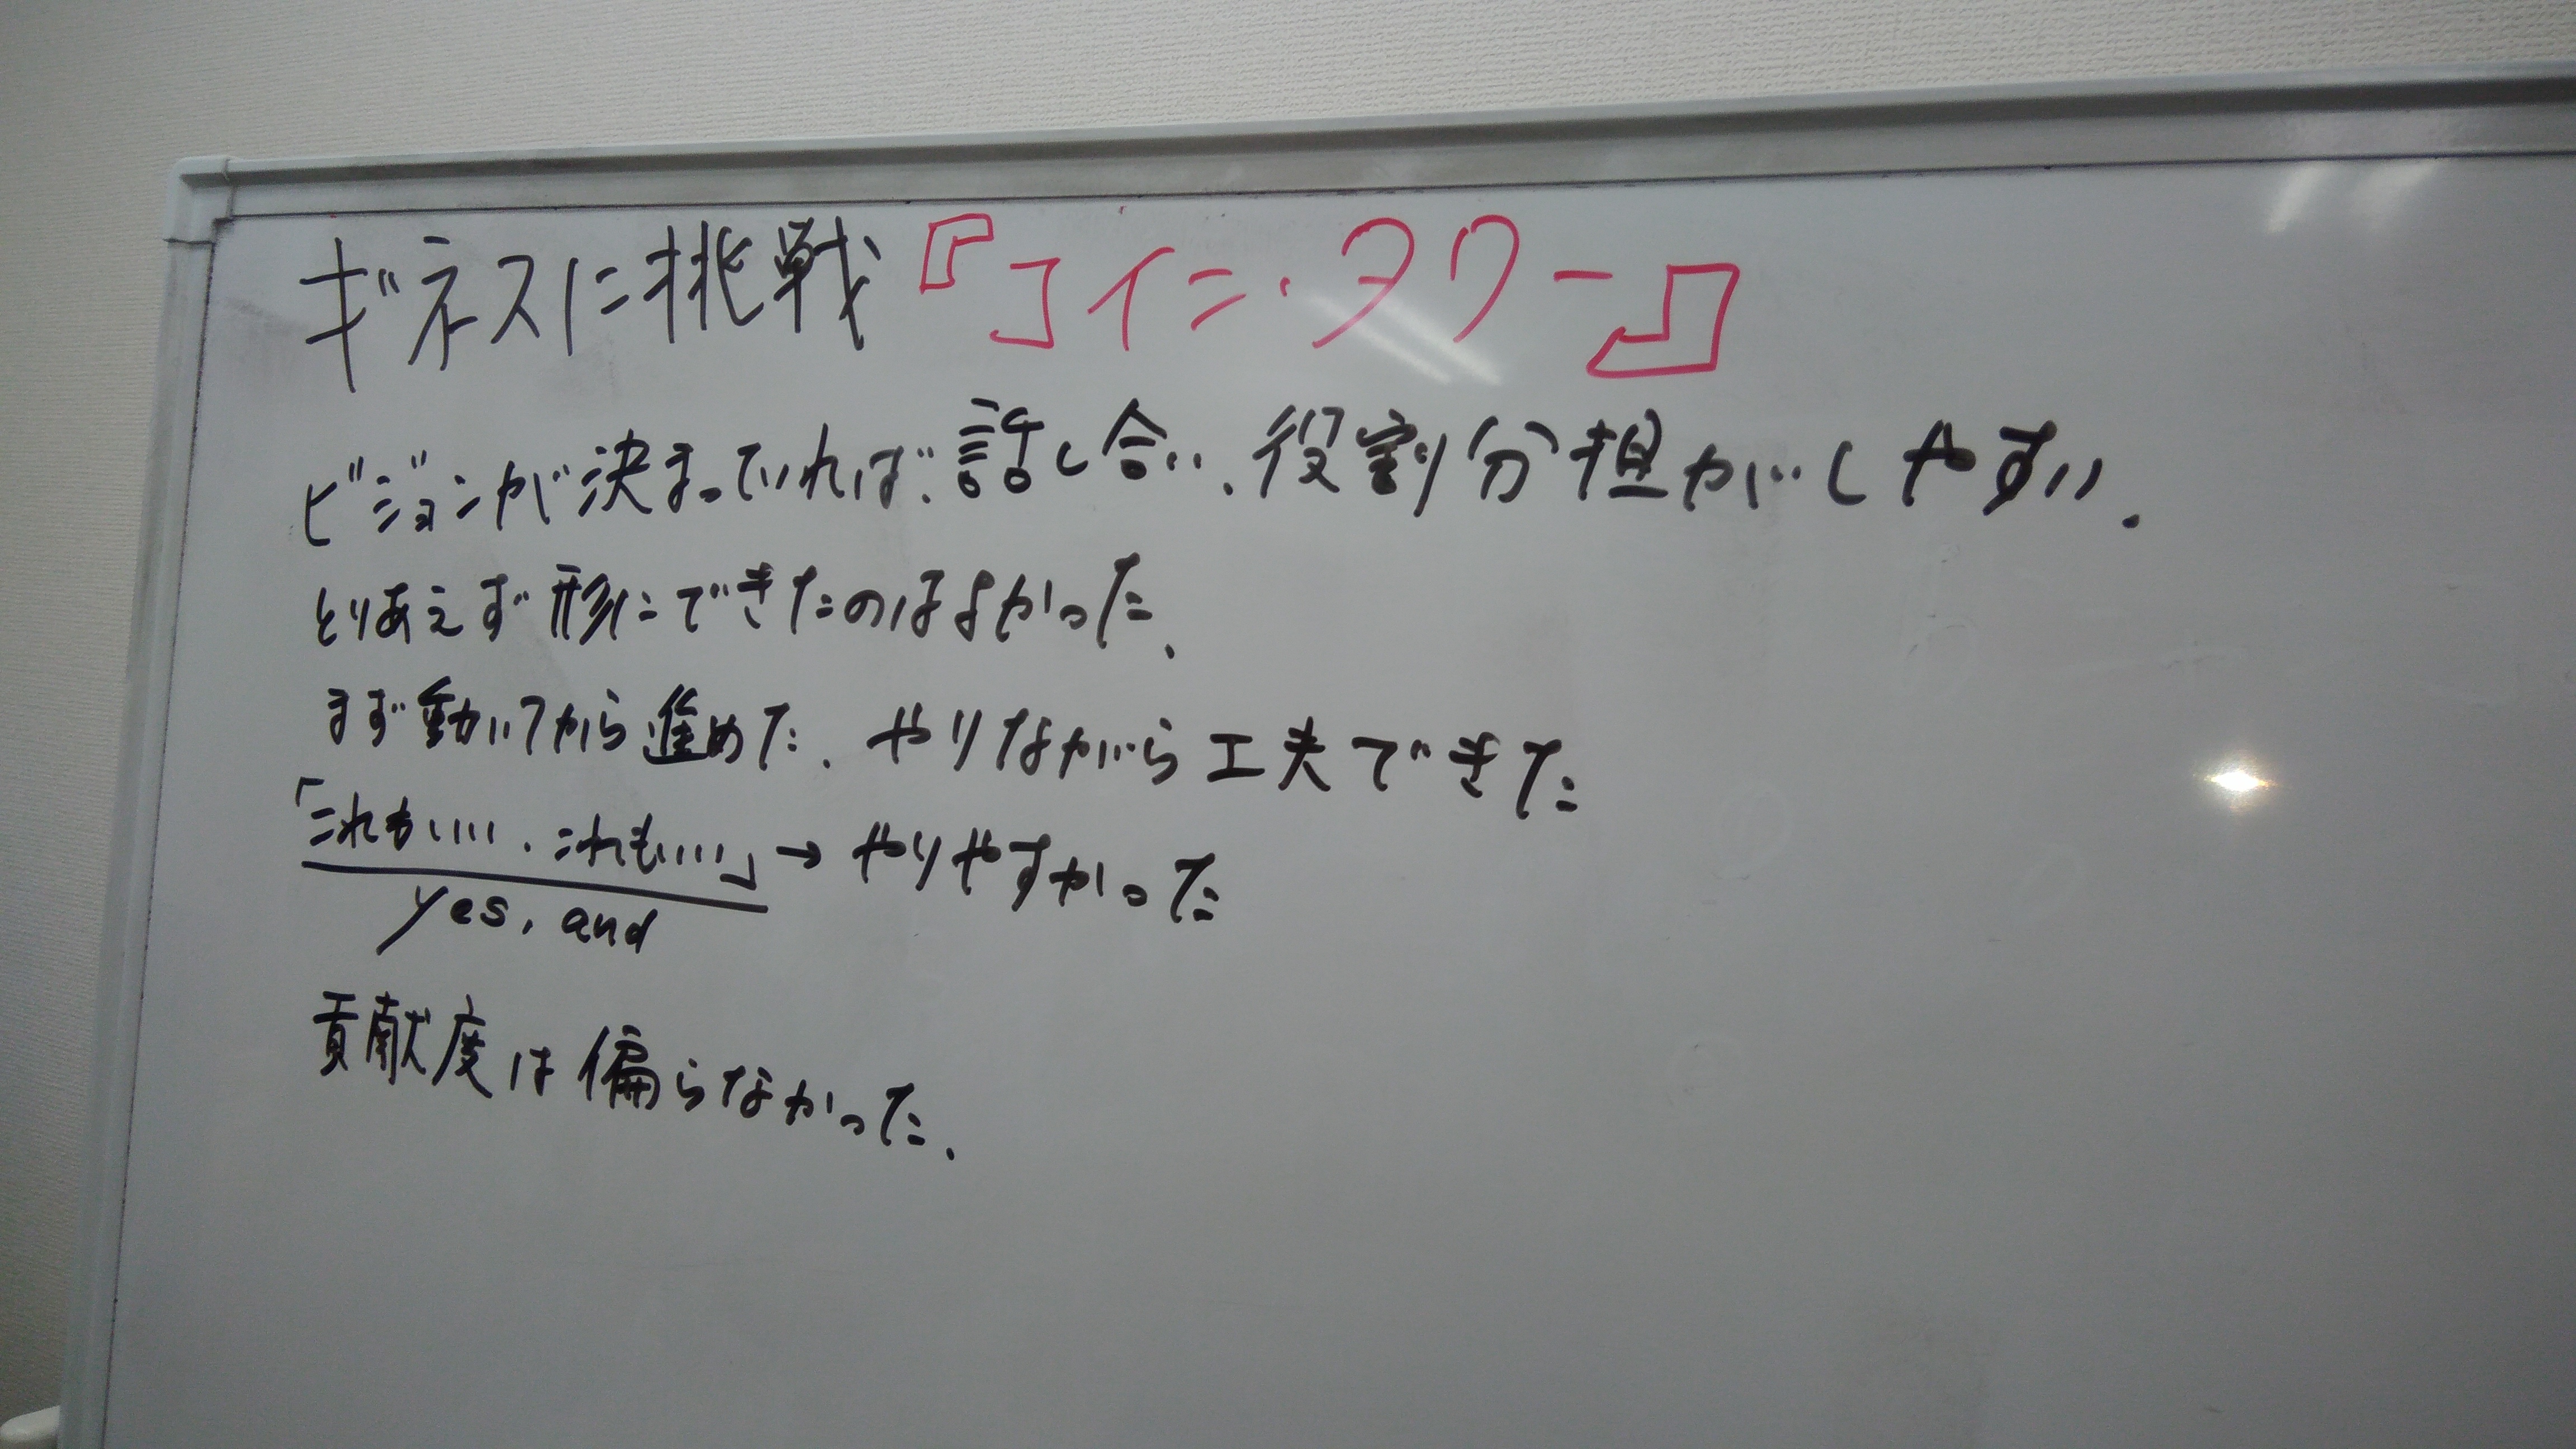 ギネスに挑戦『コイン・タワー』
ビジョンが決まっていれば、話し合い、役割分担がしやすい.
とりあえず形にできたのはよかった、
まず動いてから進めた、やりながら工夫できた
「これがいい、これもいい」→やりやすかった
yes, and
貢献度は偏らなかった、